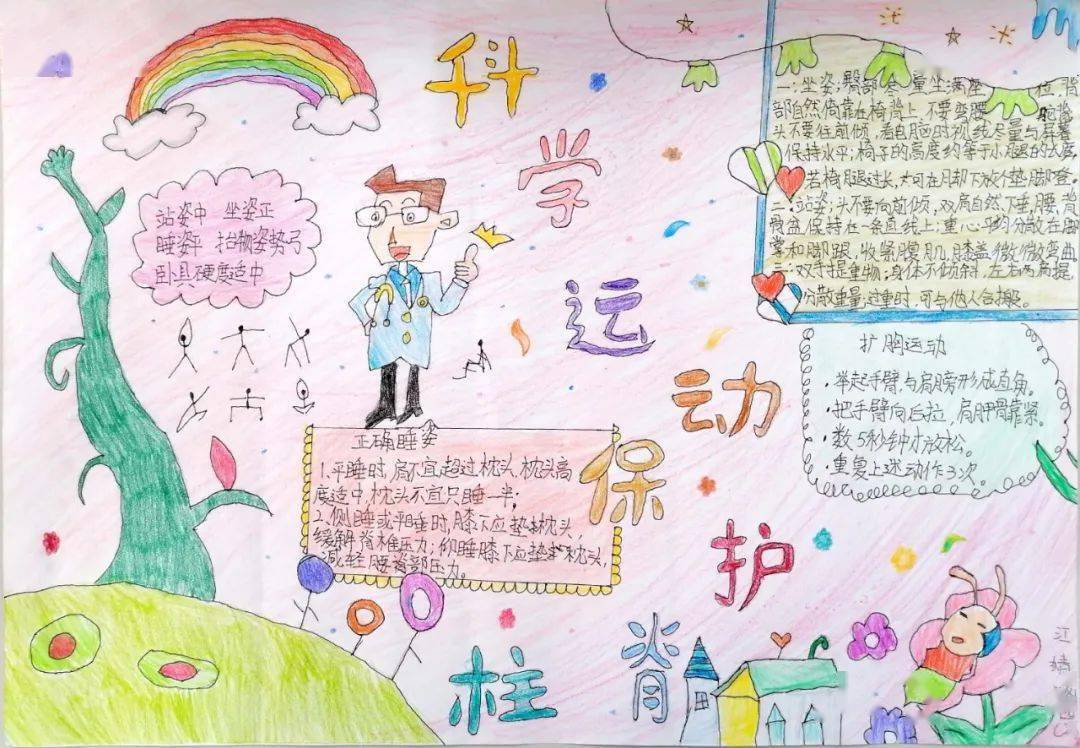 科学运动保护脊柱
站姿中 坐姿正
睡姿平 抬物姿势弓
卧具硬度适中
一:坐姿;臀部尽量坐满座 位,背
部自然倚靠在椅背上,不要弯腰 驼背
头不要往前倾,看电脑时视线尽量与屏幕
保持水平;椅子的高度约等于小腿的长度
若椅腿过长,大可在脚下放个垫脚登。
二:站姿;头不要向前倾,双肩自然下垂,腰,背
骨盆,保持在一条直线上;重心平均分散在脚
掌和脚跟,收紧腹肌,膝盖微微弯曲
三:双手提重物;身体不倾斜,左右两肩提
分散重量;过重时,可与他人合搬。
扩胸运动
·举起手臂与肩膀形成直角。
·把手臂向后拉,肩胛骨靠紧。
·数5秒钟才放松。
·重复上述动作3次。
正确睡姿
1.平睡时,肩不宜超过枕头,枕头高
度适中,枕头不宜只睡一半;
2.侧睡或平睡时,膝下应垫枕头,
缓解脊椎压力;仰睡膝下应垫枕头,
减轻腰背部压力。
江
婧